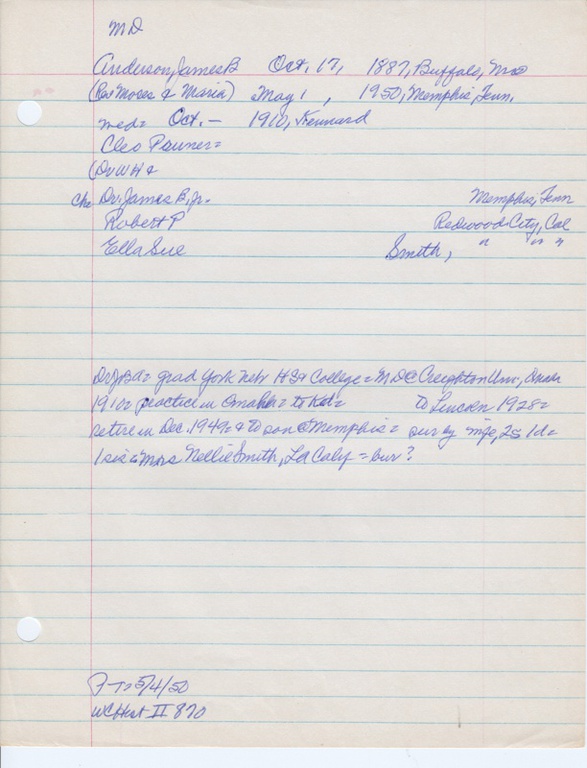 MD
Anderson, James B Oct. 17, 1887, Buffalo, Mo
(Rev Moses & Maria) May 1, 1950, Memphis, Tenn.
med= Oct. — 1910, Kennard
Cleo Pauner=
(Dr WH &
Chn Dr. James B, Jr. Memphis, Tenn
Robert P Redwood City, Cal
Ella Sue Smith, " " "
Dr JBA= grad York Nebr HS & College = MD @ Creighton Univ., Omaha
1910= practice in Omaha = to Kd= to Lincoln 1928=
retire in Dec. 1949= & to son @ Memphis = sur by wife, 2s 1d=
1 sis = Mrs Nellie Smith, La Calif = bur?
P-T= 5/4/50
WC Hist II 870